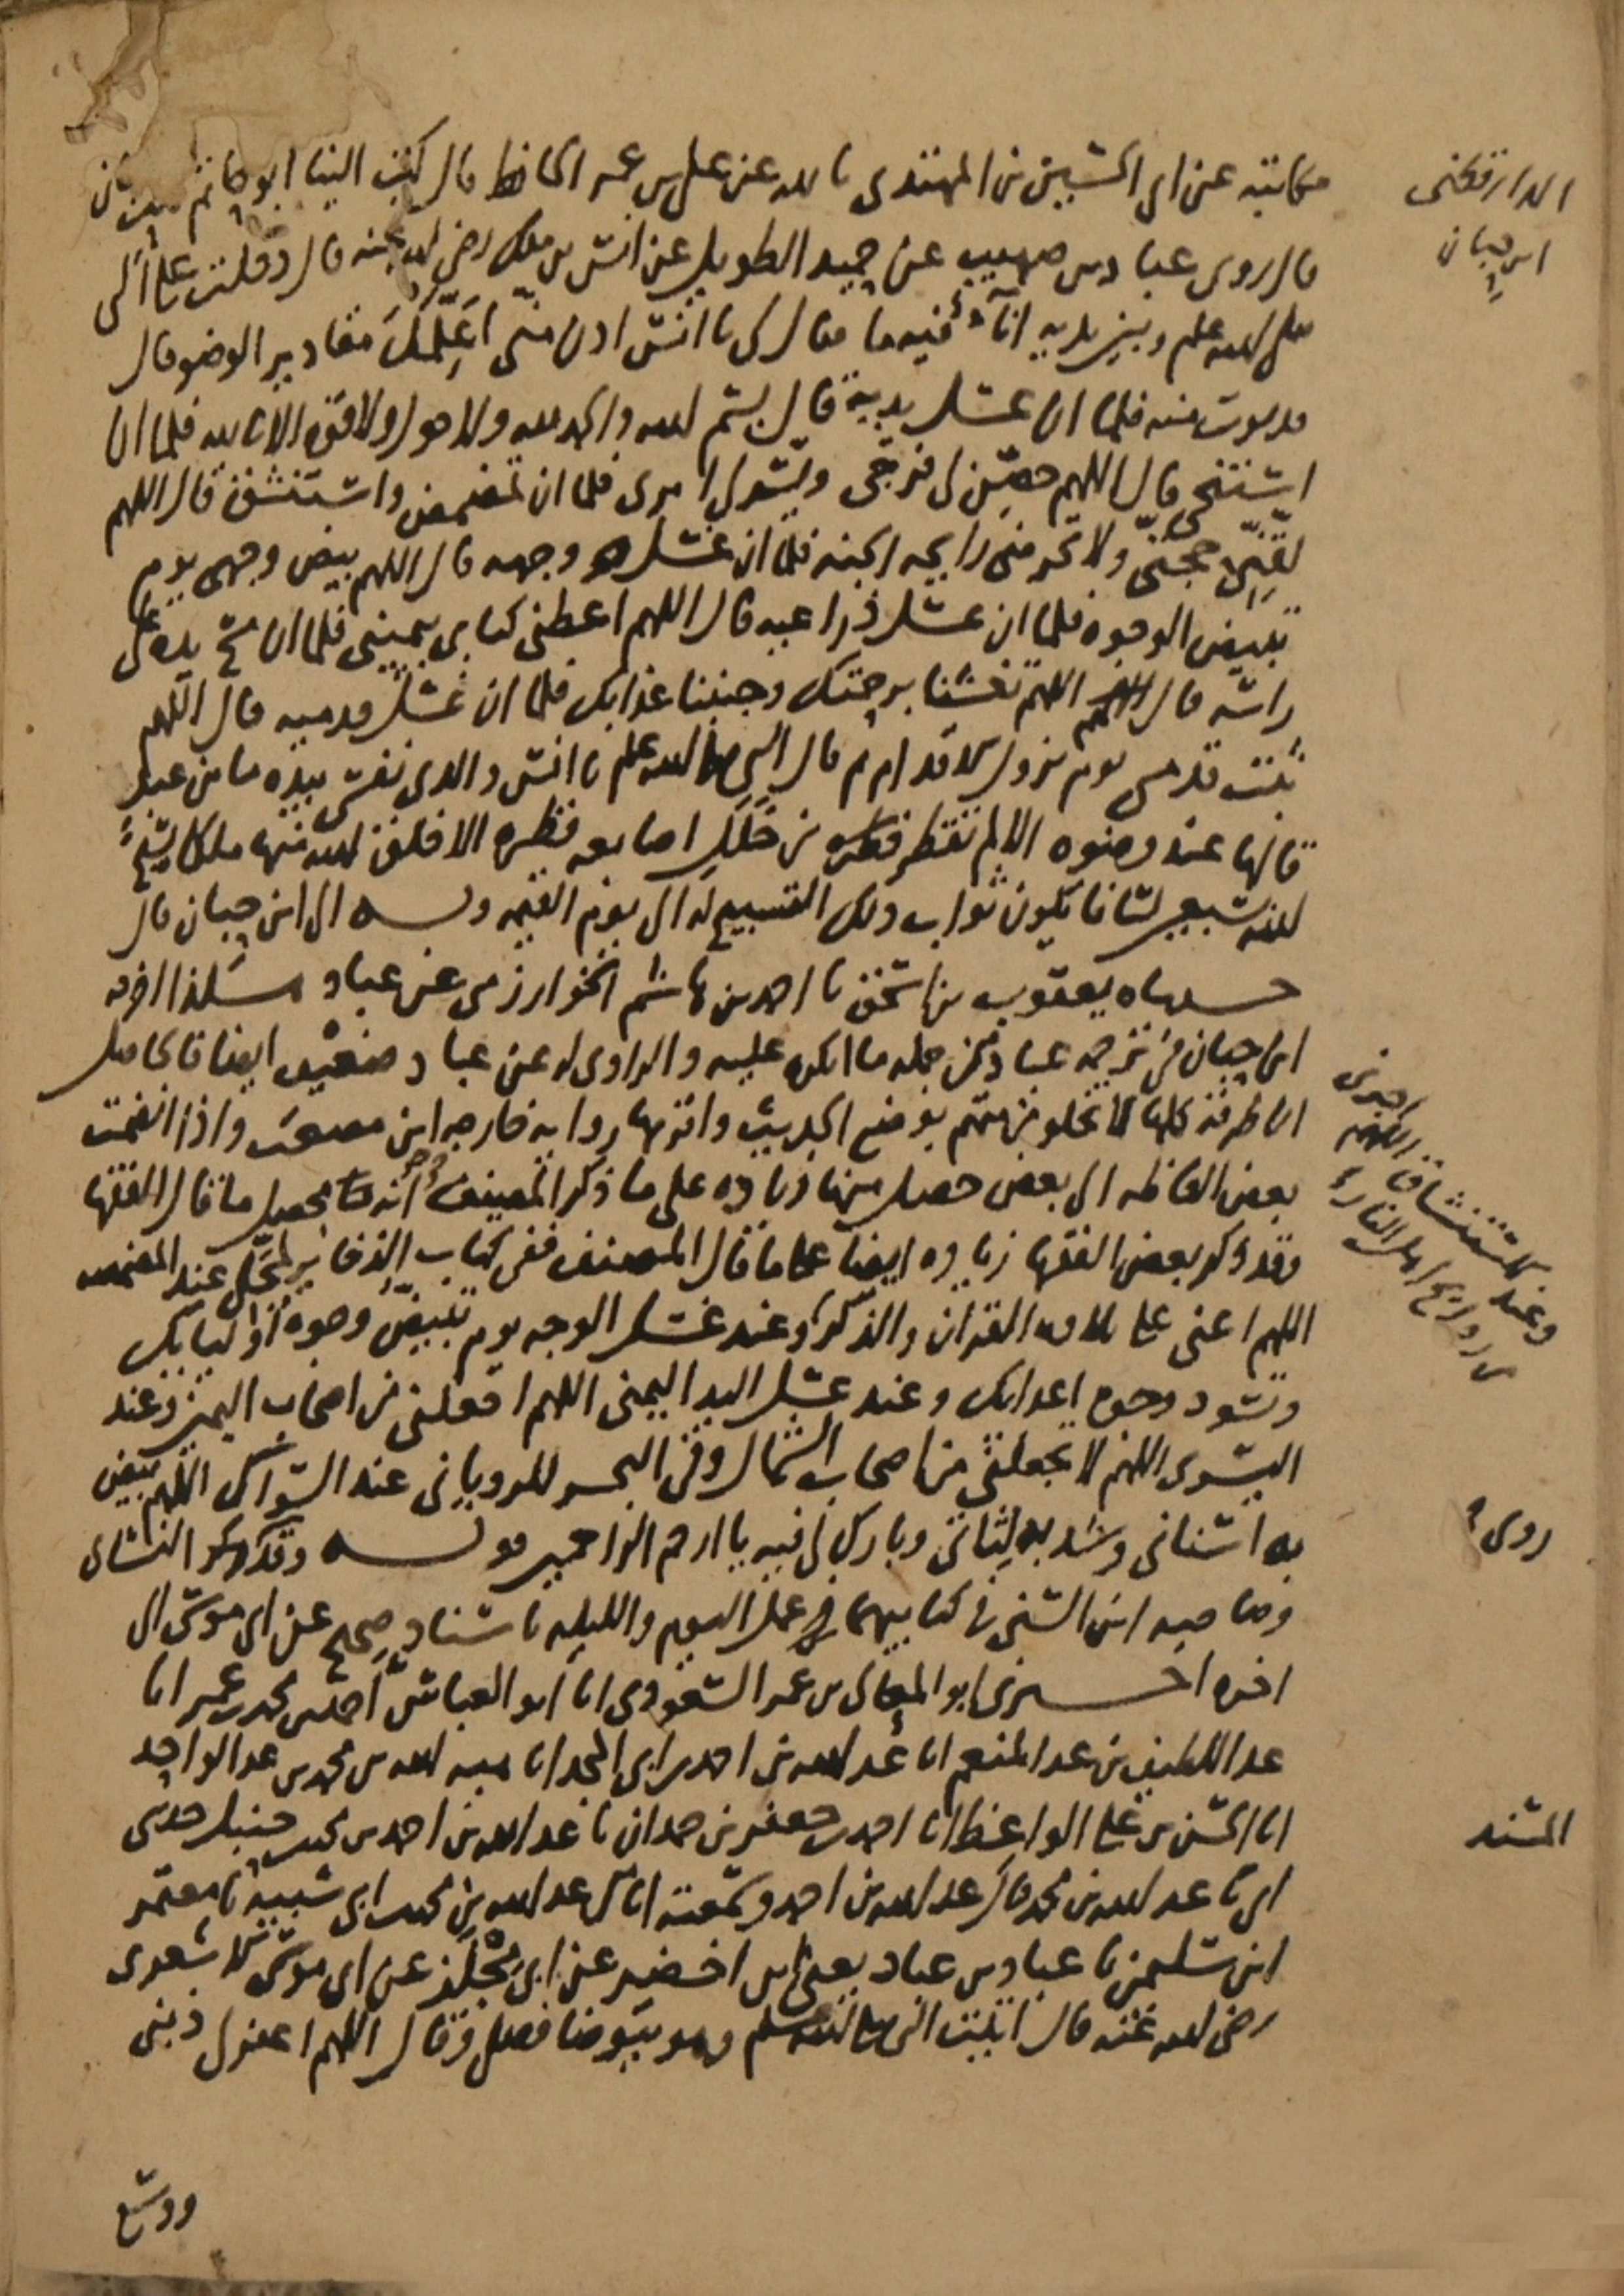 مكاتبة عن ابي الحسين بن المهتدي بالله عن علي بن عمر الحافظ قال كتب الينا ابو حاتم بن حبان
الدارقطني
ابن حبان
قال روى عباد بن صهيب عن حميد الطويل عن انس بن ملك رضي الله عنه قال دخلت على النبي
صلى الله عليه وسلم وبين يديه اناء فيه ما فقال لي يا انس ادن مني اعلمك مقادير الوضو قال
فدنوت منه فلما ان غسل يديه قال بسم الله والحمد لله ولا حول ولا قوة الا بالله فلما ان
استنجى قال اللهم حصن لي فرجي ويسر لي امري فلما ان تمضمض واستنشق قال اللهم
لقني حجتي ولا تحرمني رايحه الجنه فلما ان غسل وجهه قال اللهم بيض وجهي يوم
تبيض الوجوه فلما ان غسل ذراعيه قال اللهم اعطني كتابي بيميني فلما ان مسح يده على
راسه قال اللهم تغشنا برحمتك وجنبنا عذابك فلما ان غسل قدميه قال اللهم
ثبت قدمي يوم تزول الاقدام ثم قال النبي صلى الله عليه وسلم يا انس والذي نفسي بيده ما من عبد
قالها عند وضوه الا لم تقطر قطره من خلل اصابعه قطره الا خلق الله منها ملكا يسبح
لله بسبعين لسانا يكون ثواب ذلك التسبيح له الى يوم القيمه وبه الى ابن حبان قال
حدثناه يعقوب بن اسحق نا احمد بن هاشم الخوارزمي عن عباد هكذا اخرجه
ابن حبان في ترجمه عباد من جمله ما انكره عليه والراوي له عن عباد ضعيف ايضا فالحاصل
ان طرقه كلها لا تخلو من متهم بوضع الحديث واقربها روايه خارجه ابن مصعب واذا انضمت
بعض الفاظه الى بعض حصل منها زياده على ما ذكر المصنف انه تحصل ما قال الفقها
وقد ذكر بعض الفقها زياده ايضا على ما قال المصنف ففي كتاب الذخاير لمجلي عند المضمضه
اللهم اعني على تلاوه القران والذكر وعند غسل الوجه يوم تبيض وجوه اوليايك
وعند الاستنشاق اللهم اجرني
من روايح اهل النار
وتسود وجوه اعدايك وعند غسل اليد اليمنى اللهم اجعلني من اصحاب اليمين وعند
اليسرى اللهم لا تجعلني من اصحاب الشمال وفي البحر للروياني عند السواك اللهم بيض
به اسناني وشد به لثاتي وبارك لي فيه يا ارحم الراحمين قوله وقد روى النساي
روى
وصاحبه ابن السني في كتابيهما في عمل اليوم والليله باسناد صحيح عن ابي موسى الى
اخره اخبرني ابو المعالي بن عمر السعودي انا ابو العباس احمد بن محمد بن عمر انا
عبد اللطيف بن عبد المنعم انا عبد الله بن احمد بن ابي المجد انا هبه الله بن محمد بن عبد الواحد
انا الحسن بن علي الواعظ انا احمد بن جعفر بن حمدان نا عبد الله بن احمد بن محمد بن حنبل حدثني
المسند
ابي نا عبد الله بن محمد قال عبد الله بن احمد وسمعته انا من عبد الله بن محمد بن ابي شيبه نا معتمر
ابن سليمن نا عباد بن عباد يعني ابن اخضر عن ابي مجلز عن ابي موسى الاشعري
رضي الله عنه قال اتيت النبي صلى الله عليه وسلم وهو يتوضا فصلى وقال اللهم اغفر لي ذنبي
ووسع